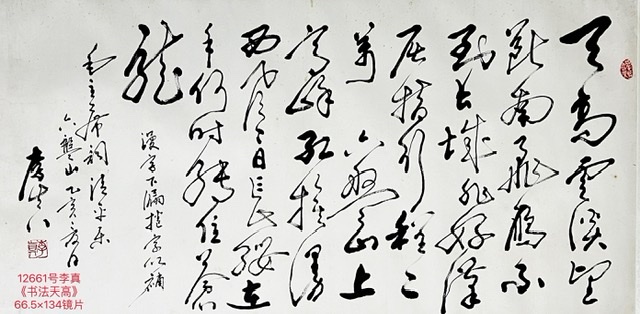 天高雲淡望
斷南飛雁不
到长城非好漢
屈指行程二
萬六盤山上
高峰红旗漫
西风今日长缨在
手何时缚住苍
龍
漫字下漏捲字以補
毛主席詞清平乐
六盤山乙亥日
李真
12661号李真
《书法天高》
66.5×134镜片